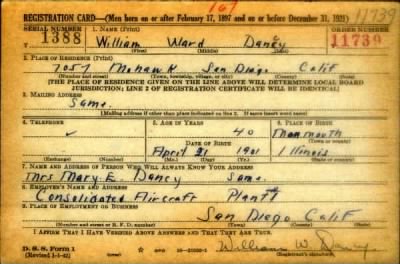 161
11739
REGISTRATION CARD—(Men born on or after February 17, 1897 and on or before December 31, 1921)
SERIAL NUMBER 1. NAME (Print) ORDER NUMBER
1388 William Ward Dancy 11739
(First) (Middle) (Last)
2. PLACE OF RESIDENCE (Print)
7057 Mohawk San Diego Calif
(Number and street) (Town, township, village, or city) (County) (State)
[THE PLACE OF RESIDENCE GIVEN ON THE LINE ABOVE WILL DETERMINE LOCAL BOARD
JURISDICTION; LINE 2 OF REGISTRATION CERTIFICATE WILL BE IDENTICAL]
3. MAILING ADDRESS
Same.
[Mailing address if other than place indicated on line 2. If same insert word same]
4. TELEPHONE 5. AGE IN YEARS 6. PLACE OF BIRTH
40 Monmouth
DATE OF BIRTH (Town or county)
April 21 1901 Illinois
(Exchange) (Number) (Mo.) (Day) (Yr.) (State or country)
7. NAME AND ADDRESS OF PERSON WHO WILL ALWAYS KNOW YOUR ADDRESS
Mrs Mary. E. Dancy Same.
8. EMPLOYER'S NAME AND ADDRESS
Consolidated Aircraft Plant
9. PLACE OF EMPLOYMENT OR BUSINESS
San Diego Calif
(Number and street or R. F. D. number) (Town) (County) (State)
I AFFIRM THAT I HAVE VERIFIED ABOVE ANSWERS AND THAT THEY ARE TRUE.
D. S. S. Form 1
(Revised 1-1-42) GPO William W. Dancy
(Registrant's signature)